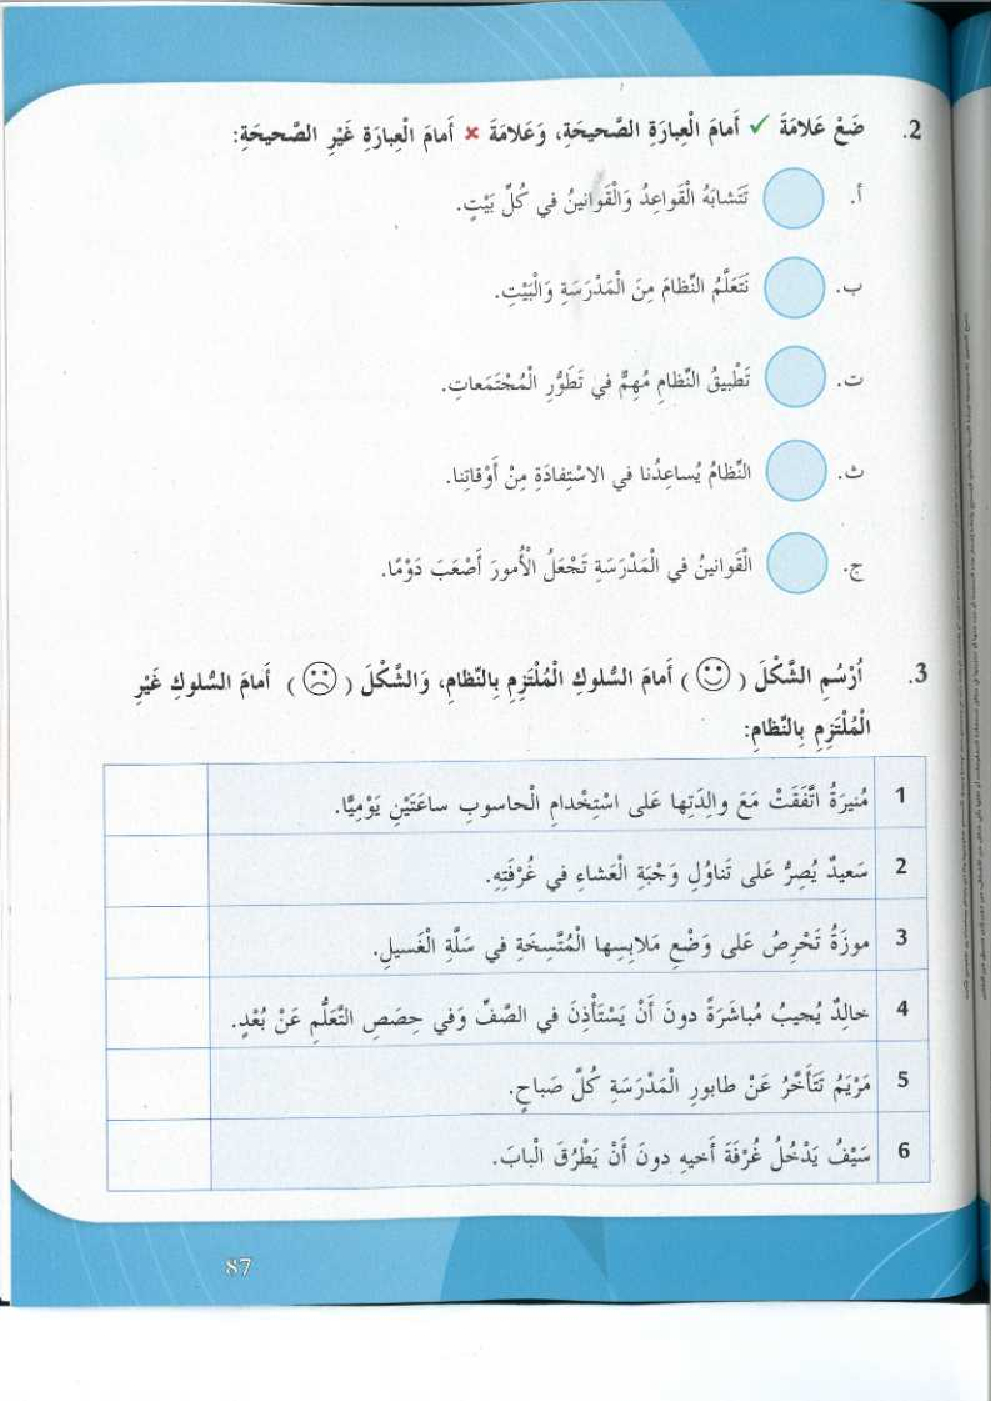 2. ضَعْ عَلامَةَ ✓ أَمامَ الْعِبارَةِ الصَّحيحَةِ، وَعَلامَةَ ✗ أَمامَ الْعِبارَةِ غَيْرِ الصَّحيحَةِ:
أ. تَتَشابَهُ الْقَواعِدُ وَالْقَوانينُ في كُلِّ بَيْتٍ.
ب. نَتَعَلَّمُ النِّظامَ مِنَ الْمَدْرَسَةِ وَالْبَيْتِ.
ت. تَطْبيقُ النِّظامِ مُهِمٌّ في تَطَوُّرِ الْمُجْتَمَعاتِ.
ث. النِّظامُ يُساعِدُنا في الاسْتِفادَةِ مِنْ أَوْقاتِنا.
ج. الْقَوانينُ في الْمَدْرَسَةِ تَجْعَلُ الْأُمورَ أَصْعَبَ دَوْمًا.
3. اُرْسُمِ الشَّكْلَ (☺) أَمامَ السُّلوكِ الْمُلْتَزِمِ بِالنِّظامِ، وَالشَّكْلَ (☹) أَمامَ السُّلوكِ غَيْرِ
الْمُلْتَزِمِ بِالنِّظامِ:
1 مُنيرَةُ اتَّفَقَتْ مَعَ والِدَتِها عَلى اسْتِخْدامِ الْحاسوبِ ساعَتَيْنِ يَوْمِيًّا.
2 سَعيدٌ يُصِرُّ عَلى تَناوُلِ وَجْبَةِ الْعَشاءِ في غُرْفَتِهِ.
3 موزَةُ تَحْرِصُ عَلى وَضْعِ مَلابِسِها الْمُتَّسِخَةِ في سَلَّةِ الْغَسيلِ.
4 خالِدٌ يُجيبُ مُباشَرَةً دونَ أَنْ يَسْتَأْذِنَ في الصَّفِّ وَفي حِصَصِ التَّعَلُّمِ عَنْ بُعْدٍ.
5 مَرْيَمُ تَتَأَخَّرُ عَنْ طابورِ الْمَدْرَسَةِ كُلَّ صَباحٍ.
6 سَيْفُ يَدْخُلُ غُرْفَةَ أَخيهِ دونَ أَنْ يَطْرُقَ الْبابَ.
87